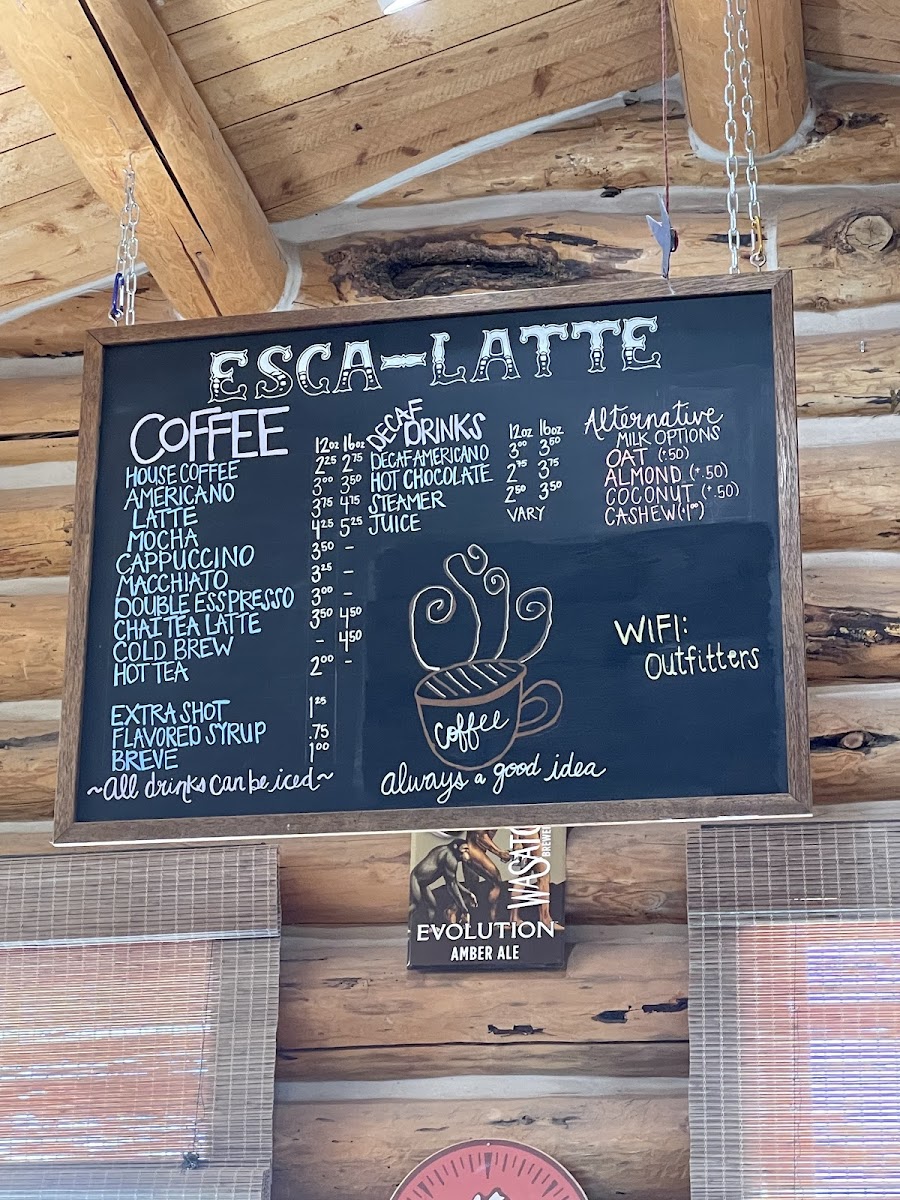 ESCA-LATTE
COFFEE 12oz 16oz
HOUSE COFFEE 2²⁵ 2⁷⁵
AMERICANO 3⁰⁰ 3⁵⁰
LATTE 3⁷⁵ 4⁷⁵
MOCHA 4²⁵ 5²⁵
CAPPUCCINO 3⁵⁰ -
MACCHIATO 3²⁵ -
DOUBLE ESSPRESSO 3⁰⁰ -
CHAI TEA LATTE 3⁵⁰ 4⁵⁰
COLD BREW - 4⁵⁰
HOT TEA 2⁰⁰ -
EXTRA SHOT 1²⁵
FLAVORED SYRUP .75
BREVE 1⁰⁰
~All drinks can be iced~
DECAF
DRINKS 12oz 16oz
DECAF AMERICANO 3⁰⁰ 3⁵⁰
HOT CHOCOLATE 2⁷⁵ 3⁷⁵
STEAMER 2⁵⁰ 3⁵⁰
JUICE VARY
Alternative
MILK OPTIONS
OAT (+.50)
ALMOND (+.50)
COCONUT (+.50)
CASHEW (+1⁰⁰)
WIFI:
Outfitters
coffee
always a good idea
EVOLUTION
AMBER ALE